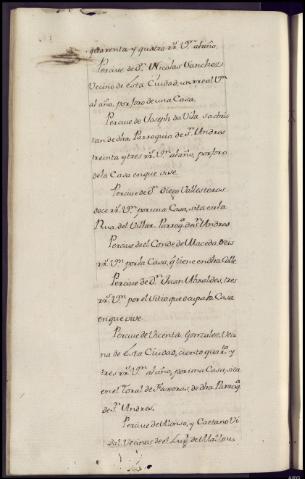 quarenta y quatro rr.^s V.^n al año.
Percive de D.^n Nicolas Sanchez
Vecino de esta Ciudad, un rreal V.^n
al año, por foro de una Casa.
Percive de Joseph da Vila sachris
tan de dha. Parroquia de S.^n Andres
treinta y tres rr.^s V.^n al año, por foro
de la Casa en que vive.
Percive de D.^n Diego Vallesteros
doce rr.^s V.^n por una Casa, sita en la
Rua del Villar, Parroq.^a de S.^n Andres
Percive de el Conde de Maceda, seis
rr.^s V.^n por la Casa, q.^e tiene en dha. Calle
Percive de D.^n Juan Abraldes, tres
rr.^s V.^n por el sitio que ocupa la Casa
en que vive.
Percive de Vicenta Gonzalez, Veci
na de esta Ciudad, ciento quar.^ta y
tres rr.^s V.^n al año, por una Casa, sita
en el Toral de dha. Parroq.^a
de S.^n Andres.
Percive de Alonso, y Caetano Vi
dal, Vecinos de el Lug.^r de